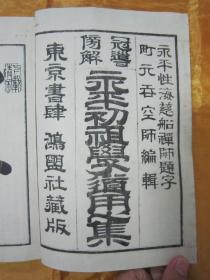 永平性海慈船禪師題字
町元呑空師編輯
冠導
傍解
永平初祖學道用心集
東京書肆 鴻盟社藏版